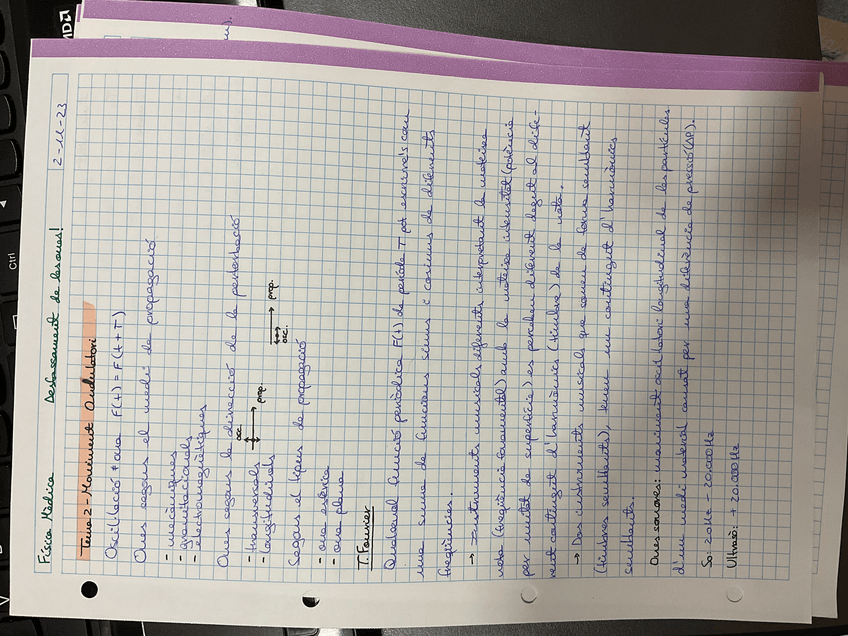 Física Mèdica Desfassament de les ones! 2-11-23
Tema 2 - Moviment Ondulatori
Oscil·lació ≠ ona F(t) = F(t+T)
Ones segons el medi de propagació
- mecàniques
- gravitacionals
- electromagnètiques
Ones segons la direcció de la pertorbació
- transversals osc. prop.
- longitudinals osc. prop.
Segons el tipus de propagació
- ona esfèrica
- ona plana
T. Fourier
Qualsevol funció periòdica F(t) de període T pot escriure's com
una suma de funcions sinus i cosinus de diferents
freqüències.
→ Instruments musicals diferents interpretant la mateixa
nota (freqüència fonamental) amb la mateixa intensitat (potència
per unitat de superfície) es perceben diferent degut al dife-
rent contingut d'harmònics (timbre) de la nota.
→ Dos instruments musicals que sonen de forma semblant
(timbres semblants), tenen un contingut d'harmònics
semblants.
Ones sonores: moviment oscil·latori longitudinal de les partícules
d'un medi material causat per una diferència de pressió (ΔP).
So: 20Hz - 20.000Hz
Ultrasò: + 20.000Hz
Ctrl